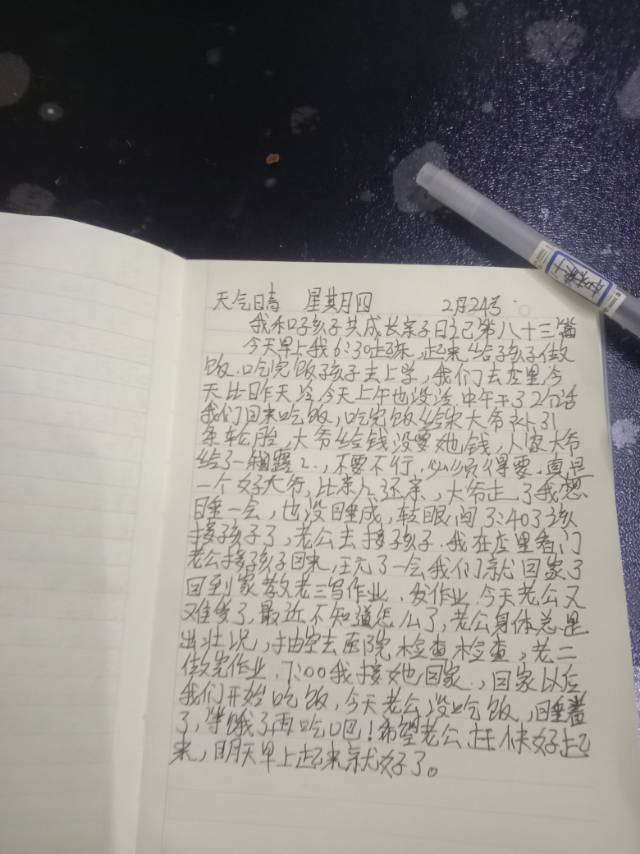 天气日青 星期四 2月24号
我和孩子共成长亲子日记第八十三篇
今天早上我6:30起床,起来给孩子做
饭.吃完饭孩子去上学,我们去店里今
天比昨天冷,今天上午也没活,中午干了2个活
我们回来吃饭,吃完饭给宋大爷补了
车轮胎,大爷给钱没要她钱,人家大爷
给了一,不要不行,必须得要.真是
一个好大爷,比亲人还亲,大爷走了我想
睡一会,也没睡成,转眼间3:40了该
接孩子了,老公去接孩子.我在店里看门
老公接孩子回来,玩了一会我们就回家了
回到家教老三写作业.发作业,今天老公又
难受了,最近不知道怎么了,老公身体总是
出壮况,抽空去医院检查检查,老二
做完作业.7:00我接她回家.,回家以后
我们开始吃饭,今天老公没吃饭,睡着
了,等饿了再吃吧!希望老公赶快好起
来,明天早上起来就好了。
中性笔